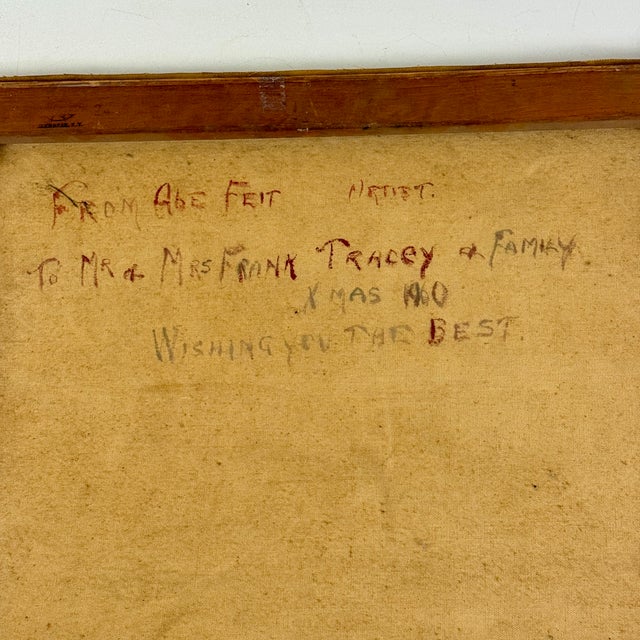 FROM ABE FEIT ARTIST.
TO MR & MRS FRANK TRACEY & FAMILY
XMAS 1960
WISHING YOU THE BEST.